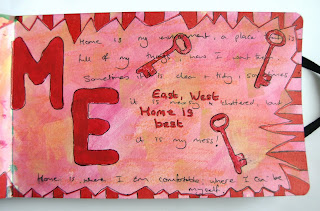 ME
Home is my environment, a place that is
full of my things, wants +
Sometimes it is clean + tidy, sometimes
it is messy + cluttered, but
it is my mess!
East, West
Home is
best
Home is where I am comfortable, where I can be
myself.